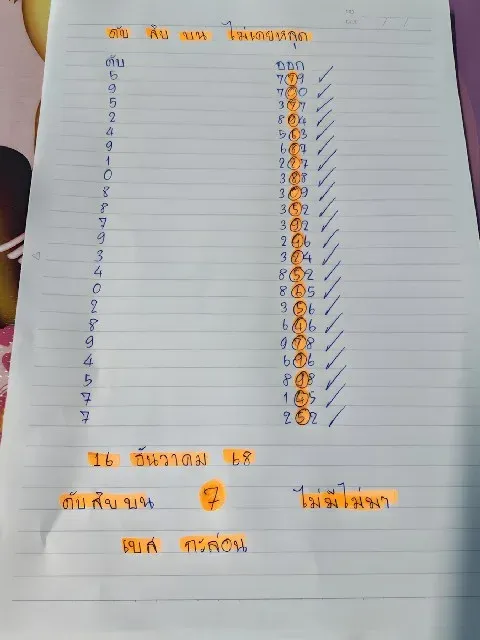 ดับ สิบ บน ไม่เคยหลุด
ดับ ออก
5 779
9 700
5 377
2 894
4 563
9 687
1 227
0 388
8 309
8 352
7 392
9 296
3 324
4 852
0 865
2 356
8 646
9 978
4 696
5 898
7 145
7 252
16 ธันวาคม 68
ดับ สิบ บน 7 ไม่มีไม่มา
เบส กะล่อน